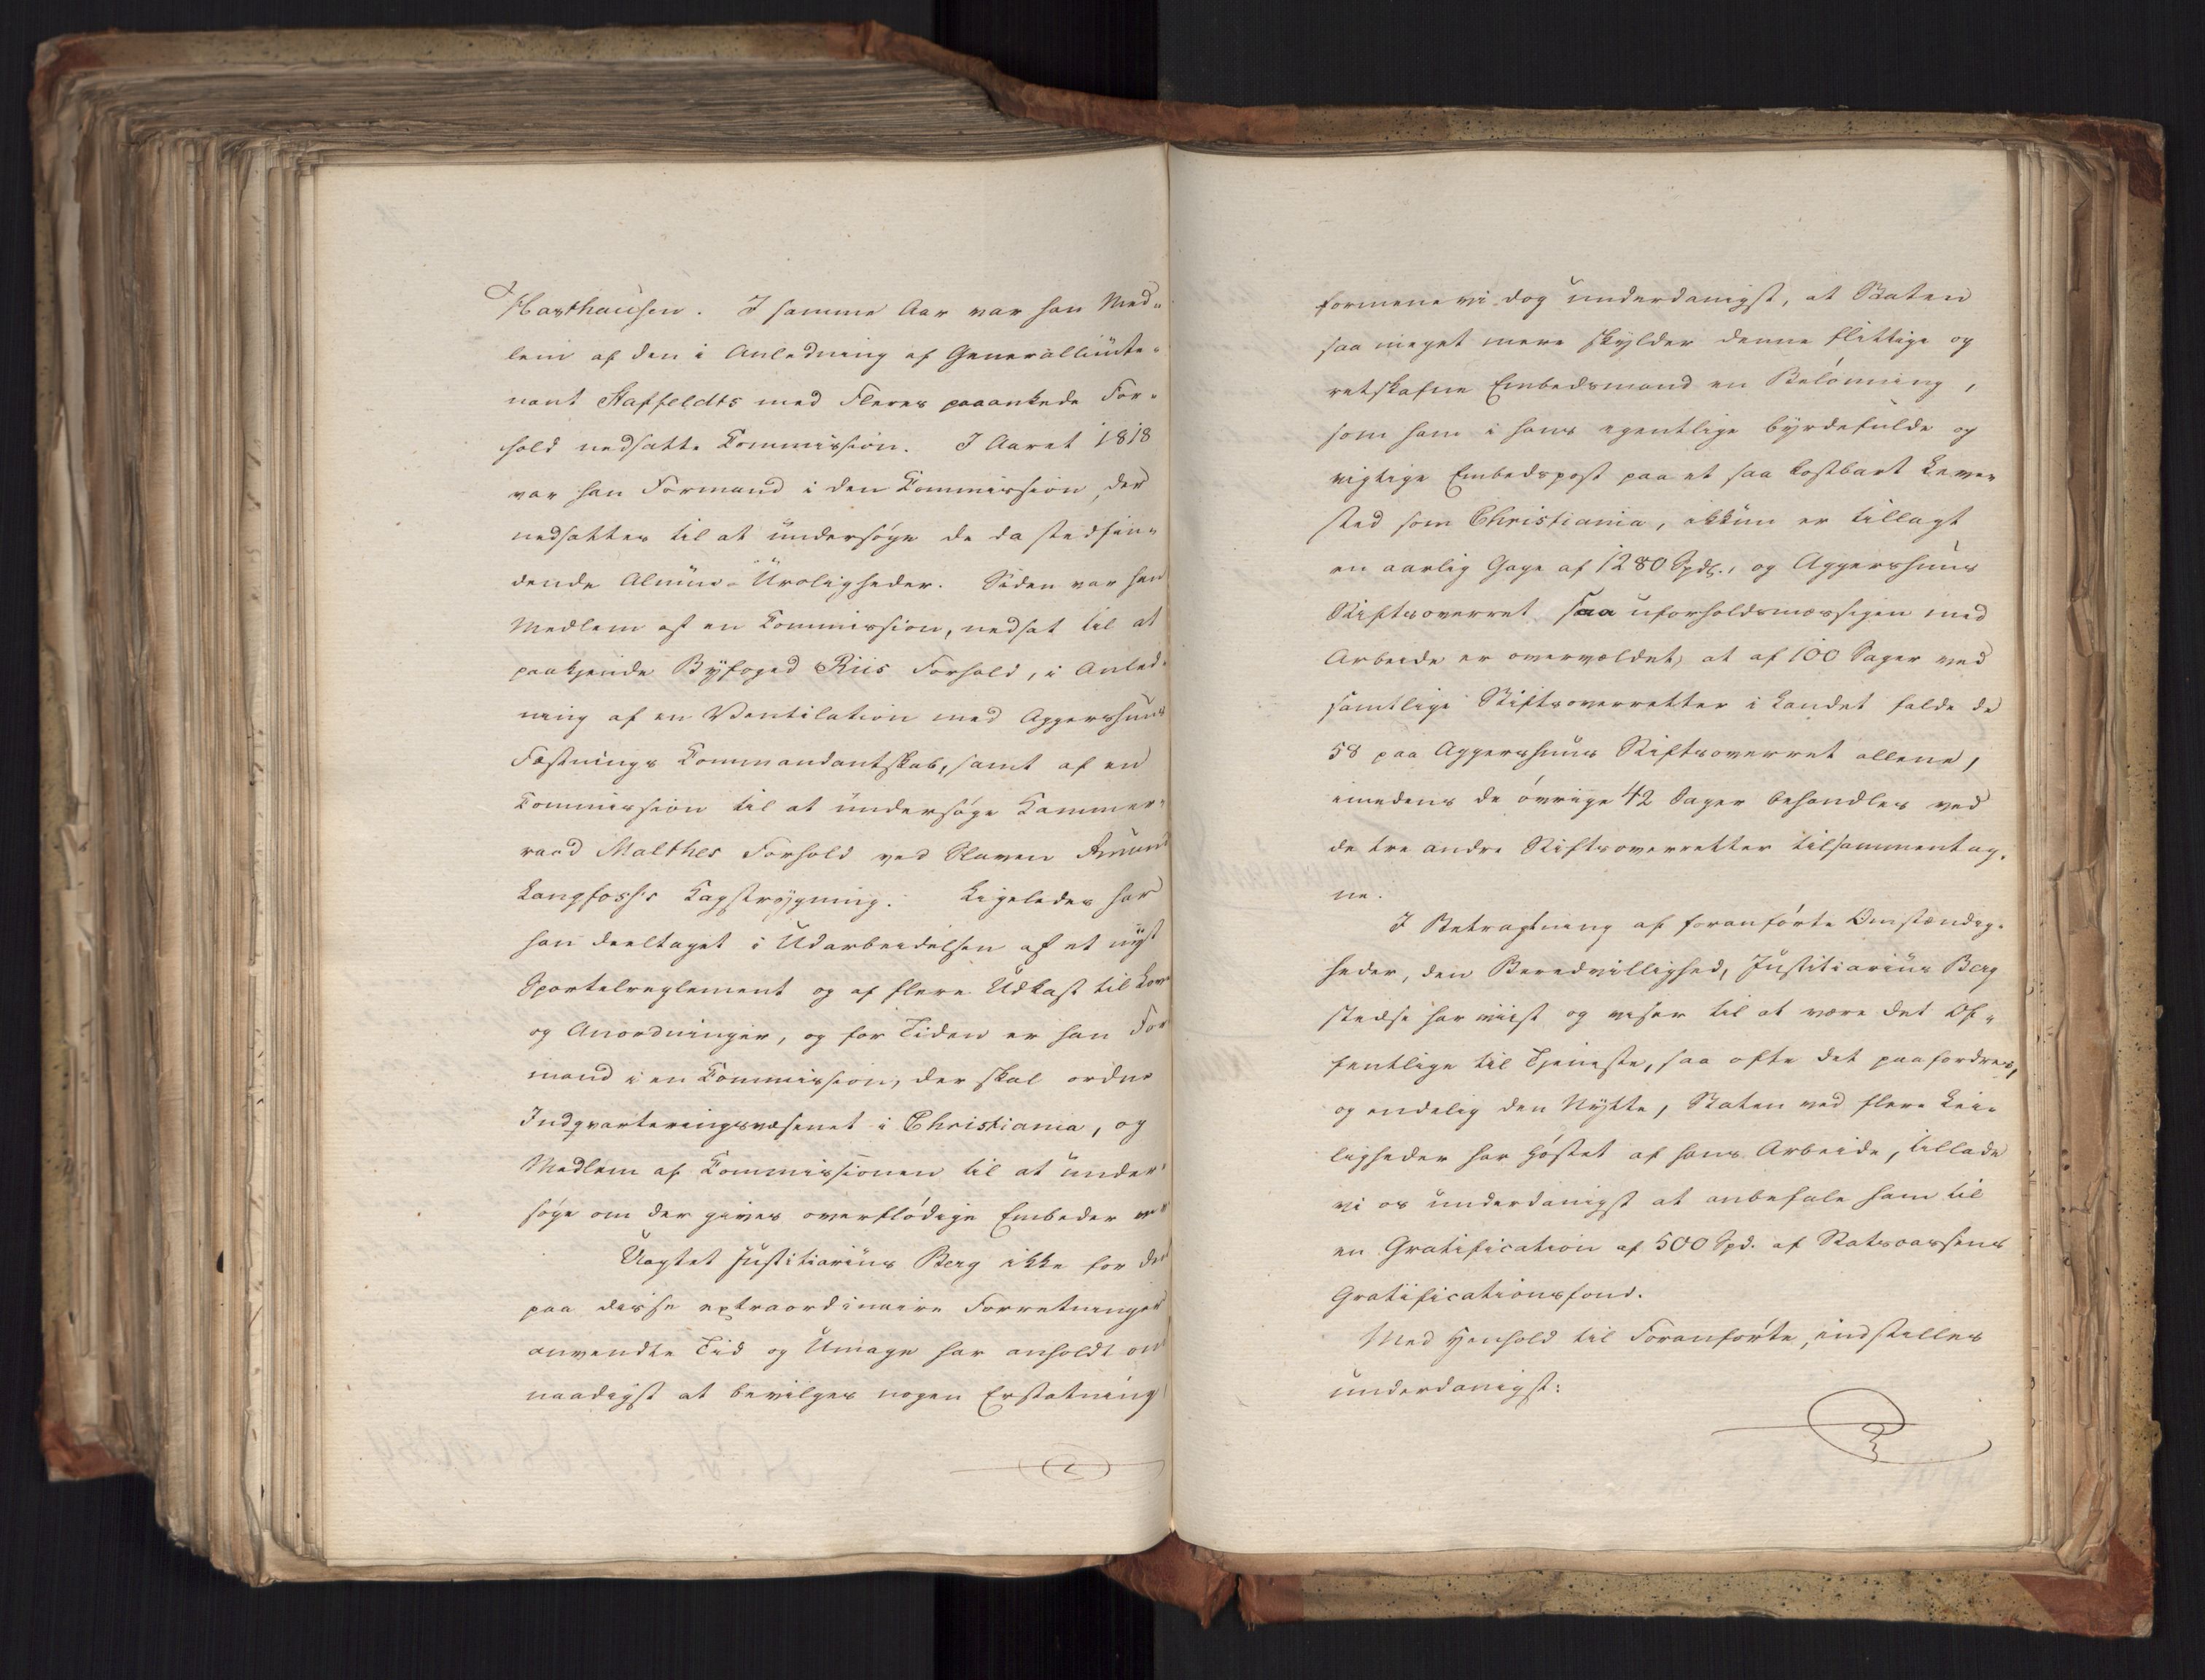 Haxthausen. I samme Aar var han Med-
lem af den i Anledning af Generallieute-
nant Staffeldts med Fleres paaankede For-
hold nedsatte Commission. I Aaret 1818
var han Formand i den Commission, der
nedsattes til at undersøge de da stedfin-
dende Almue-Uroligheder. Siden var han
Medlem af en Commission, nedsat til at
paakjende Byfoged Riis Forhold, i Anled-
ning af en Ventilation med Aggershuus
Fæstnings Commandantskab, samt af en
Commission til at undersøge Kammer-
raad Malthes Forhold ved Slaven Amund
Langfoss's Kagstrygning. Ligeledes har
han deeltaget i Udarbeidelsen af et nyt
Sportelreglement og af flere Udkast til Love
og Anordninger, og for Tiden er han For
mand i en Commission, der skal ordne
Indqvarteringsvæsenet i Christiania, og
Medlem af Commissionen til at under-
søge om der gives overflødige Embeder
Uagtet Justitiarius Berg ikke for den
paa disse extraordinaire Forretninger
anvendte Tid og Umage har anholdt om
naadigst at bevilges nogen Erstatning,
formene vi dog underdanigst, at Staten
saa meget mere skylder denne flittige og
retskafne Embedsmand en Belønning,
som ham i hans egentlige byrdefulde og
vigtige Embedspost paa et saa kostbart Leve-
sted som Christiania, ikkun er tillagt
en aarlig Gage af 1280 Spdlr., og Aggershuus
Stiftsoverret saa uforholdsmæssigen med
Arbeide er overvældet, at af 100 Sager ved
samtlige Stiftsoverretter i Landet falde de
58 paa Aggershuus Stiftsoverret allene,
imedens de øvrige 42 Sager behandles ved
de tre andre Stiftsoverretter tilsammentag-
ne.
I Betragtning af foranførte Omstændig-
heder, den Beredvillighed, Justitiarius Berg
stedse har viist og viser til at være det Of-
fentlige til Tjeneste, saa ofte det paafordres,
og endelig den Nytte, Staten ved flere Lei-
ligheder har høstet af hans Arbeide, tillade
vi os underdanigst at anbefale ham til
en Gratification af 500 Spd. af Statscassens
Gratificationsfond.
Med Henhold til Foranførte, indstilles
underdanigst: